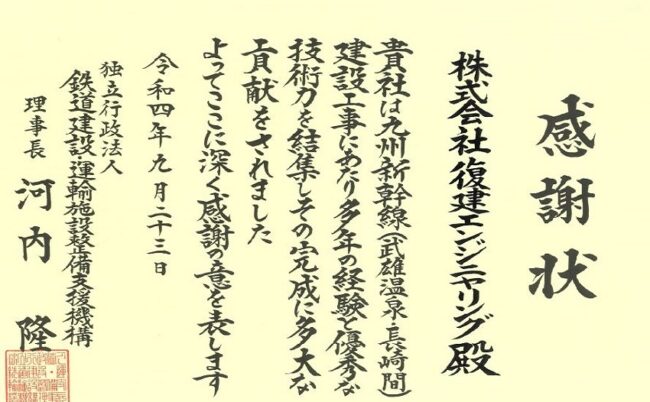 感謝状
株式会社復建エンジニヤリング殿
貴社は九州新幹線(武雄温泉・長崎間)
建設工事にあたり多年の経験と優秀な
技術力を結集しその完成に多大な
貢献をされました
よってここに深く感謝の意を表します
令和四年九月二十三日
独立行政法人
鉄道建設・運輸施設整備支援機構
理事長 河内 隆